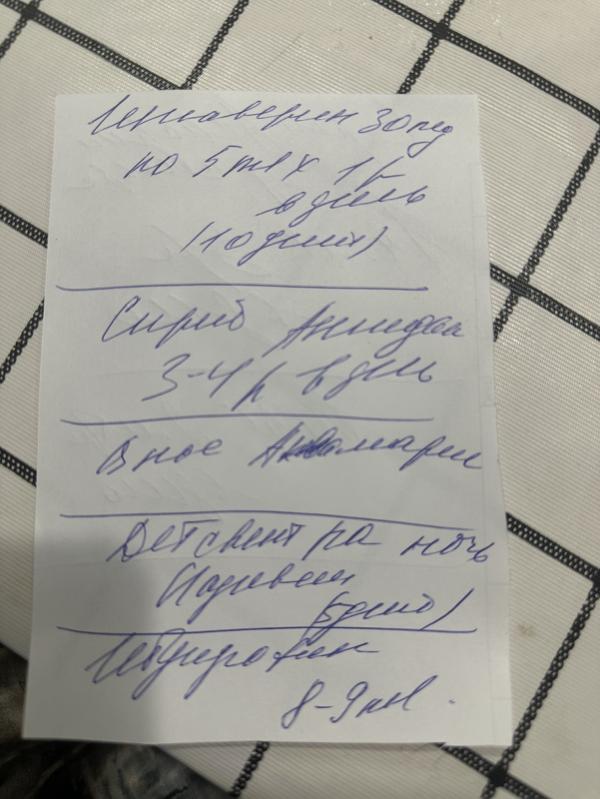 30 мг
по 5 мл х 1 р
в день
(10 дней)
Сироп
3-4 р в день
В нос Аквамарис
Детский на ночь
Називин
(5 дней)
Ибупрофен
8-9 мл.